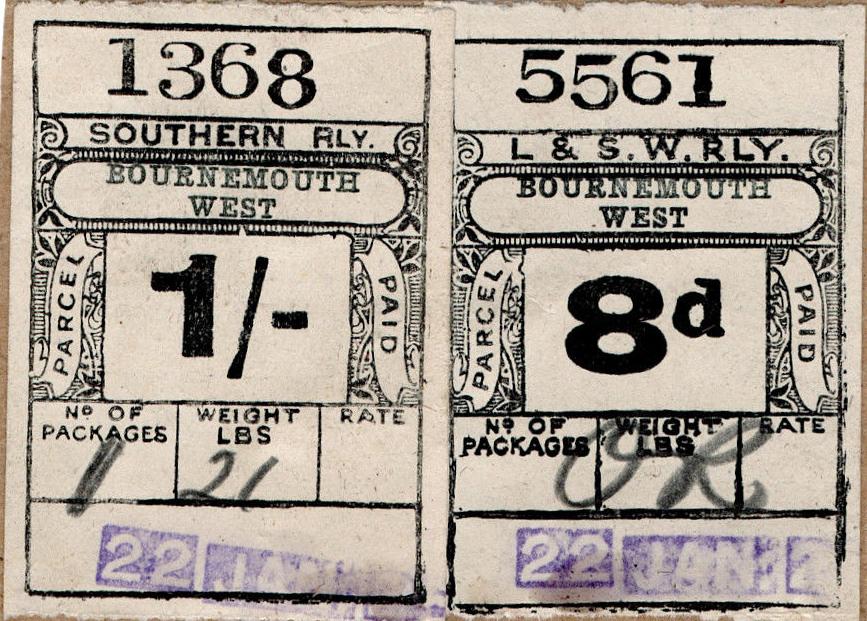 1368
SOUTHERN RLY.
BOURNEMOUTH
WEST
PARCEL
1/-
PAID
Nº OF
PACKAGES
WEIGHT
LBS
RATE
1
21
22 JAN
5561
L & S.W.RLY.
BOURNEMOUTH
WEST
PARCEL
8d
PAID
Nº OF
PACKAGES
WEIGHT
LBS
RATE
OR
22 JAN